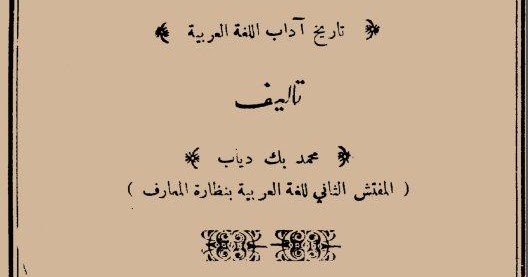 تاريخ آداب اللغة العربية
تاليف
محمد بك دياب
( المفتش الثاني للغة العربية بنظارة المعارف )